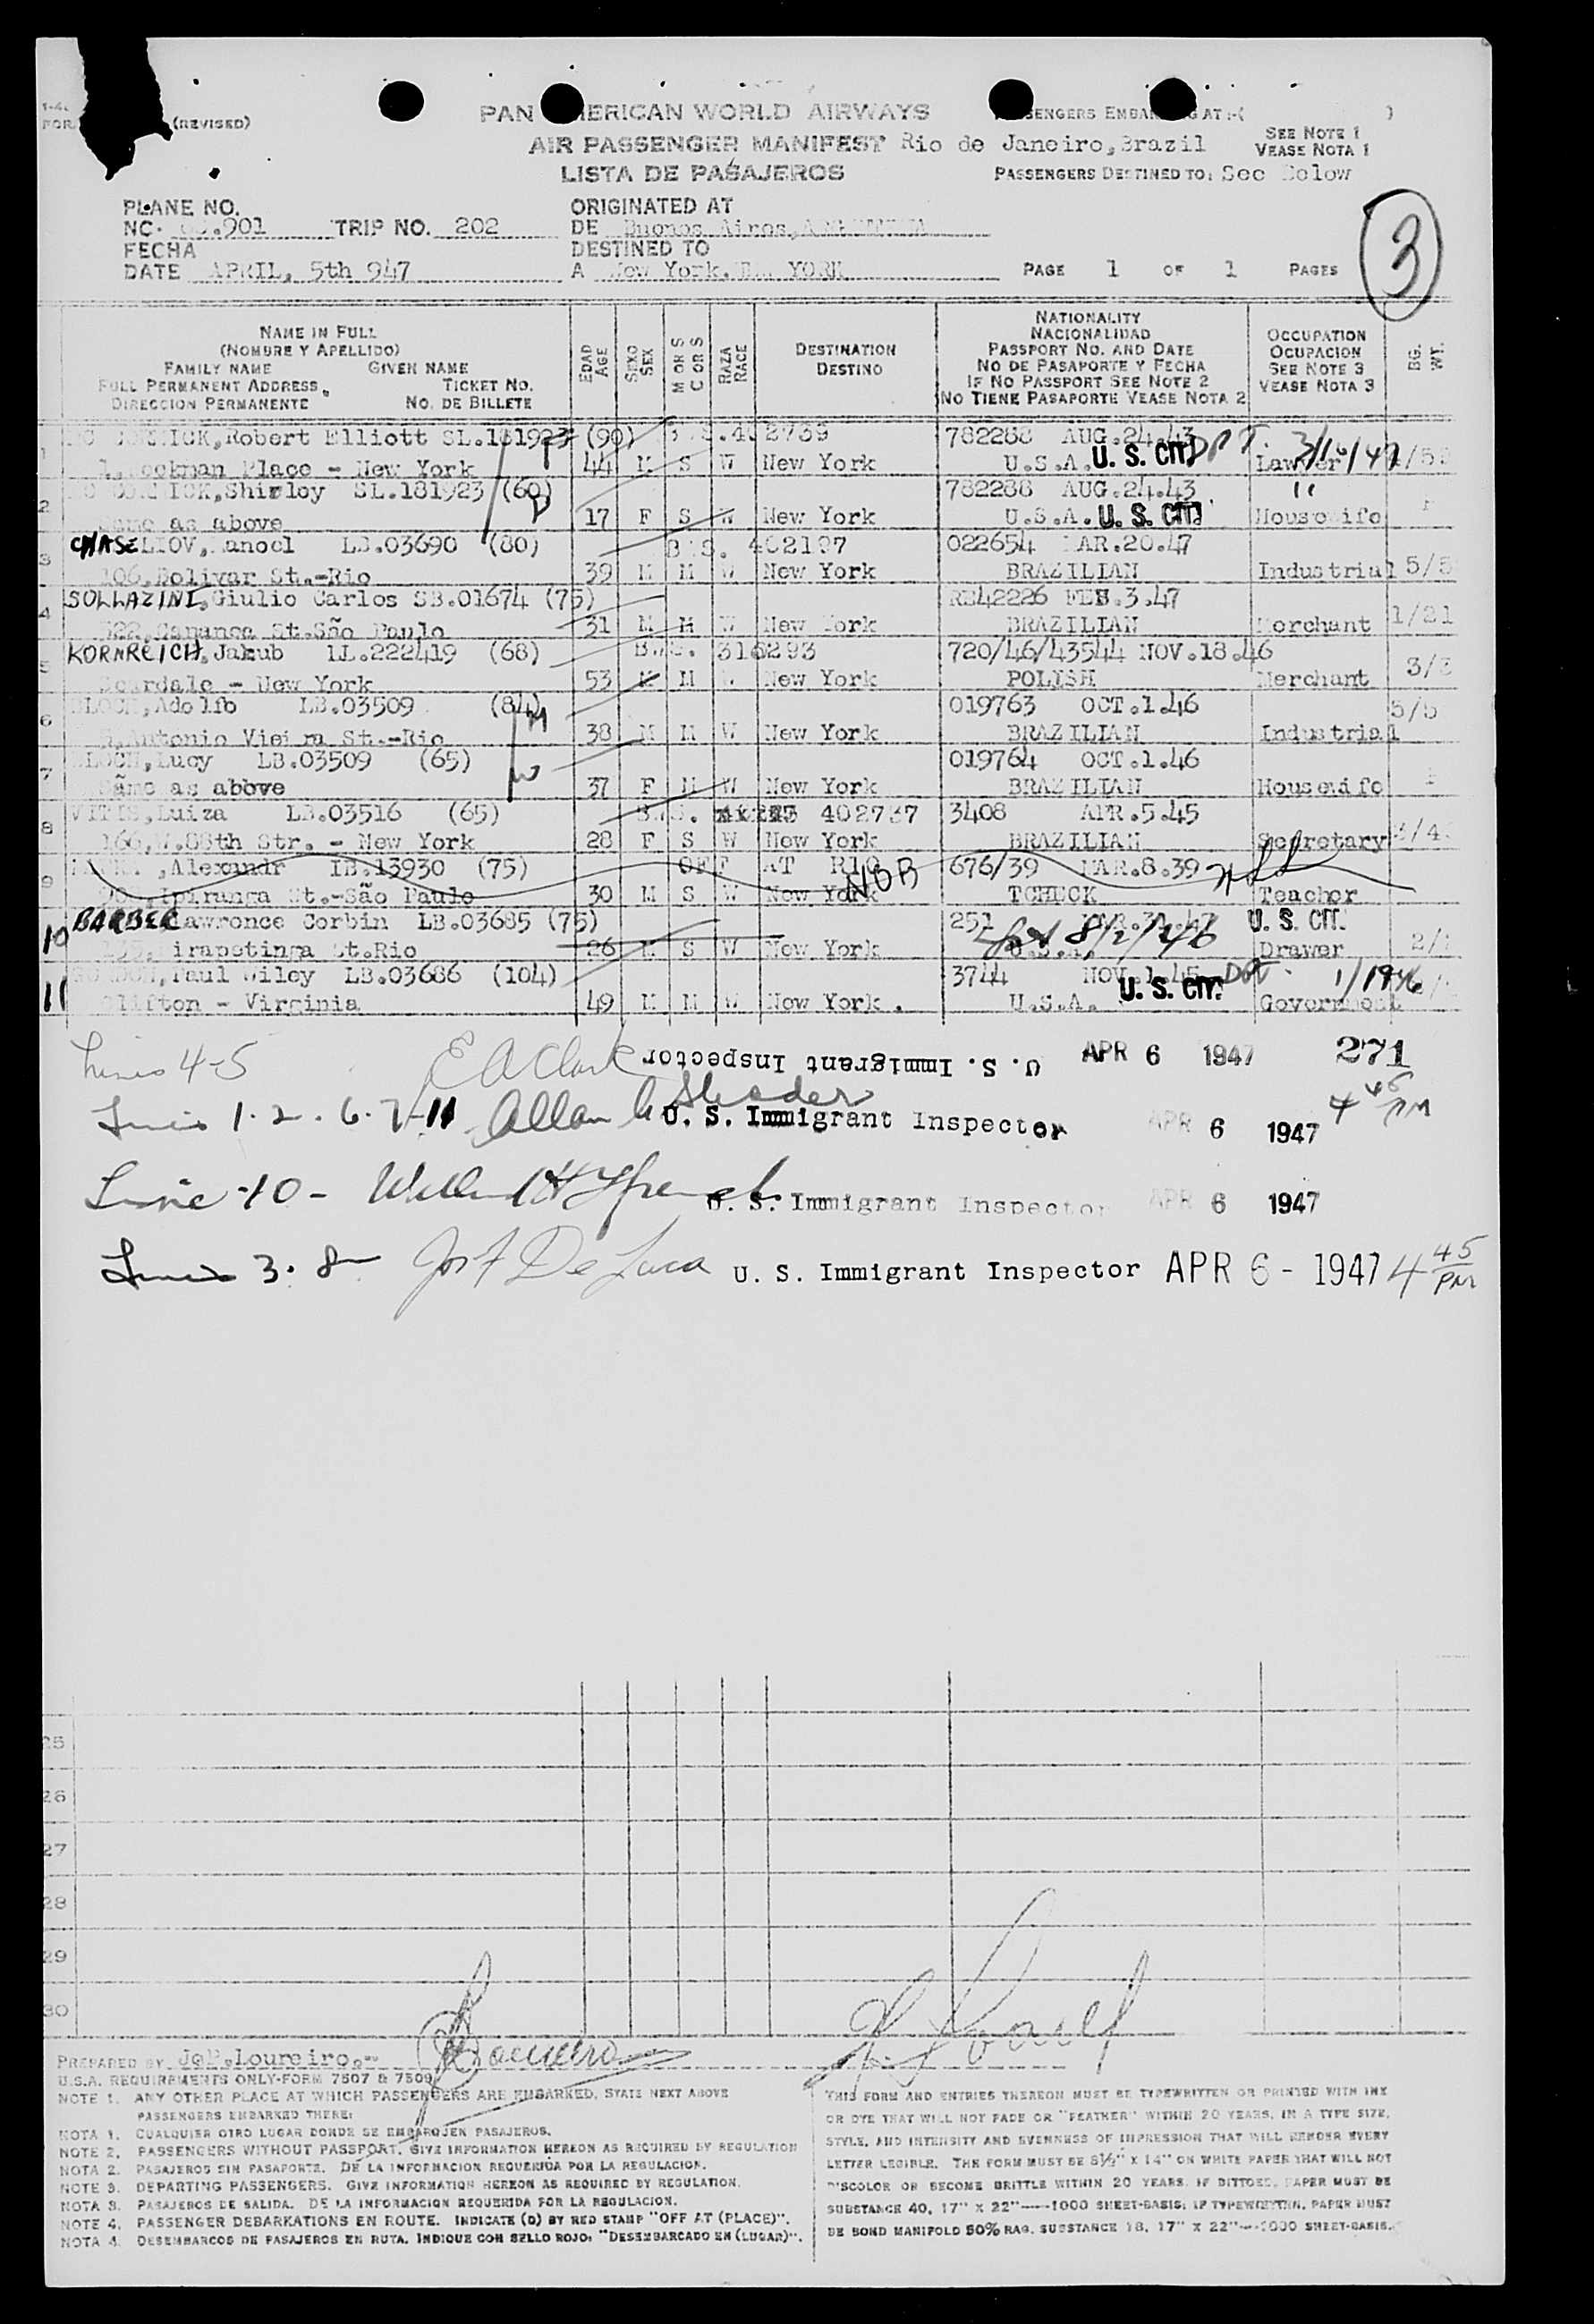 (REVISED)
PAN AMERICAN WORLD AIRWAYS
AIR PASSENGER MANIFEST
LISTA DE PASAJEROS
PASSENGERS EMBARKING AT :-( )
Rio de Janeiro, Brazil
SEE NOTE 1
VEASE NOTA 1
PASSENGERS DESTINED TO: See Below
PLANE NO.
NC- .901 TRIP NO. 202
FECHA
DATE APRIL, 5th 947
ORIGINATED AT
DE Buenos Aires, ARGENTINA
DESTINED TO
A New York. YORK
PAGE 1 OF 1 PAGES
3
NAME IN FULL
(NOMBRE Y APELLIDO)
FAMILY NAME GIVEN NAME
FULL PERMANENT ADDRESS TICKET NO.
DIRECCION PERMANENTE NO. DE BILLETE
EDAD AGE
SEXO SEX
M OR S
C OR S
RAZA RACE
DESTINATION
DESTINO
NATIONALITY
NACIONALIDAD
PASSPORT NO. AND DATE
NO DE PASAPORTE Y FECHA
IF NO PASSPORT SEE NOTE 2
NO TIENE PASAPORTE VEASE NOTA 2
OCCUPATION
OCUPACION
SEE NOTE 3
VEASE NOTA 3
BG. WT.
1 ,Robert Elliott SL.181923 (90) 782288 AUG.24.43
Place - New York 44 M S W New York U.S.A. U. S. CIT. Lawyer
2 ,Shirley SL.181923 (60) 782288 AUG.24.43 "
Same as above 17 F S W New York U.S.A. U. S. CIT. Housewife
3 CHASELIOV, anoel LB.03690 (80) 402197 022654 MAR.20.47
106,Bolivar St.-Rio 39 M M W New York BRAZILIAN Industrial 5/5
4 SOLLAZINI,Giulio Carlos SB.01674 (75) RE42226 FEB.3.47
St.São Paulo 31 M M W New York BRAZILIAN Merchant 1/21
5 KORNREICH,Jakub IL.222419 (68) 720/46/43544 NOV.18.46
- New York 53 M M W New York POLISH Merchant 3/3
6 BLOCH,Adolfo LB.03509 (84) 019763 OCT.1.46 5/5
Antonio Vieira St.-Rio 38 M M W New York BRAZILIAN Industrial
7 BLOCH,Lucy LB.03509 (65) 019764 OCT.1.46
Same as above 37 F M W New York BRAZILIAN Housewife
8 ,Luiza LB.03516 (65) 402737 3408 APR.5.45
166,W.88th Str. - New York 28 F S W New York BRAZILIAN Secretary
9 ,Alexandr IB.13930 (75) OFF AT RIO 676/39 MAR.8.39
Ipiranga St.-São Paulo 30 M S W New York NOB TCHECK Teacher
10 BARBER Lawrence Corbin LB.03685 (75) 251 U. S. CIT.
St.Rio 26 M S W New York 8/2/46 Drawer
11 ,Paul Wiley LB.03686 (104) 3744 NOV.1.45
Clifton - Virginia 49 M M W New York. U.S.A. U. S. CIT. Government
Lines 4-5 E A Clark U. S. Immigrant Inspector APR 6 1947 271
Lines 1. 2. 6. 7-11 Allan U. S. Immigrant Inspector APR 6 1947 4 45 PM
Line -10- U. S. Immigrant Inspector APR 6 1947
Lines 3. 8 Jos F De Luca U. S. Immigrant Inspector APR 6 - 1947 4 45 PM
25
26
27
28
29
30
PREPARED BY J. Loureiro.-
U.S.A. REQUIREMENTS ONLY-FORM 7507 & 7509
NOTE 1. ANY OTHER PLACE AT WHICH PASSENGERS ARE EMBARKED, STATE NEXT ABOVE
PASSENGERS EMBARKED THERE:
NOTA 1. CUALQUIER OTRO LUGAR DONDE SE EMBARQUEN PASAJEROS.
NOTE 2. PASSENGERS WITHOUT PASSPORT. GIVE INFORMATION HEREON AS REQUIRED BY REGULATION
NOTA 2. PASAJEROS SIN PASAPORTE. DE LA INFORMACION REQUERIDA POR LA REGULACION.
NOTE 3. DEPARTING PASSENGERS. GIVE INFORMATION HEREON AS REQUIRED BY REGULATION.
NOTA 3. PASAJEROS DE SALIDA. DE LA INFORMACION REQUERIDA POR LA REGULACION.
NOTE 4. PASSENGER DEBARKATIONS EN ROUTE. INDICATE (D) BY RED STAMP "OFF AT (PLACE)".
NOTA 4. DESEMBARCOS DE PASAJEROS EN RUTA. INDIQUE CON SELLO ROJO: "DESEMBARCADO EN (LUGAR)".
THIS FORM AND ENTRIES THEREON MUST BE TYPEWRITTEN OR PRINTED WITH INK
OR DYE THAT WILL NOT FADE OR "FEATHER" WITHIN 20 YEARS, IN A TYPE SIZE,
STYLE, AND INTENSITY AND EVENNESS OF IMPRESSION THAT WILL RENDER EVERY
LETTER LEGIBLE. THE FORM MUST BE 8½" X 14" ON WHITE PAPER THAT WILL NOT
DISCOLOR OR BECOME BRITTLE WITHIN 20 YEARS. IF DITTOED, PAPER MUST BE
SUBSTANCE 40, 17" X 22"—1000 SHEET-BASIS; IF TYPEWRITTEN, PAPER MUST
BE BOND MANIFOLD 50% RAG, SUBSTANCE 18, 17" X 22"—1000 SHEET-BASIS.